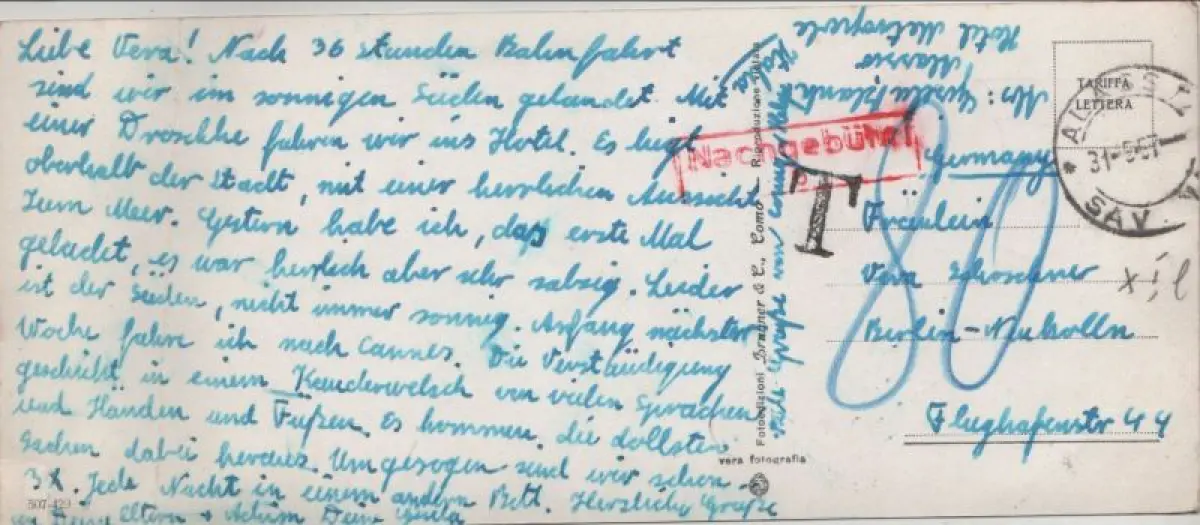 Liebe Vera! Nach 36 Stunden Bahnfahrt
sind wir im sonnigen Süden gelandet. Mit
einer Droschke fahren wir ins Hotel. Es liegt
oberhalb der Stadt, mit einer herrlichen Aussicht
zum Meer. Gestern habe ich, das erste Mal
gebadet, es war herrlich aber sehr salzig. Leider
ist der Süden, nicht immer sonnig. Anfang nächster
Woche fahre ich nach Cannes. Die Verständigung
geschieht in einem Kauderwelsch von vielen Sprachen
und Händen und Füßen. Es kommen, die dollsten
Sachen dabei heraus. Umgezogen sind wir schon
3x. Jede Nacht in einem andern Bett. Herzliche Grüße
Eltern + Achim Deine Gisela
507-429
Viele Grüße
Fotoedizioni Brunner & C., Como - Riproduzione
vera fotografia
Nachgebühr
T
80
Abs: Gisela
Alassio
Hotel Metropole
TARIFFA
LETTERA
31-5-57
SAV
Germany
Fräulein
Vera
Berlin-Neukölln
Flughafenstr 44